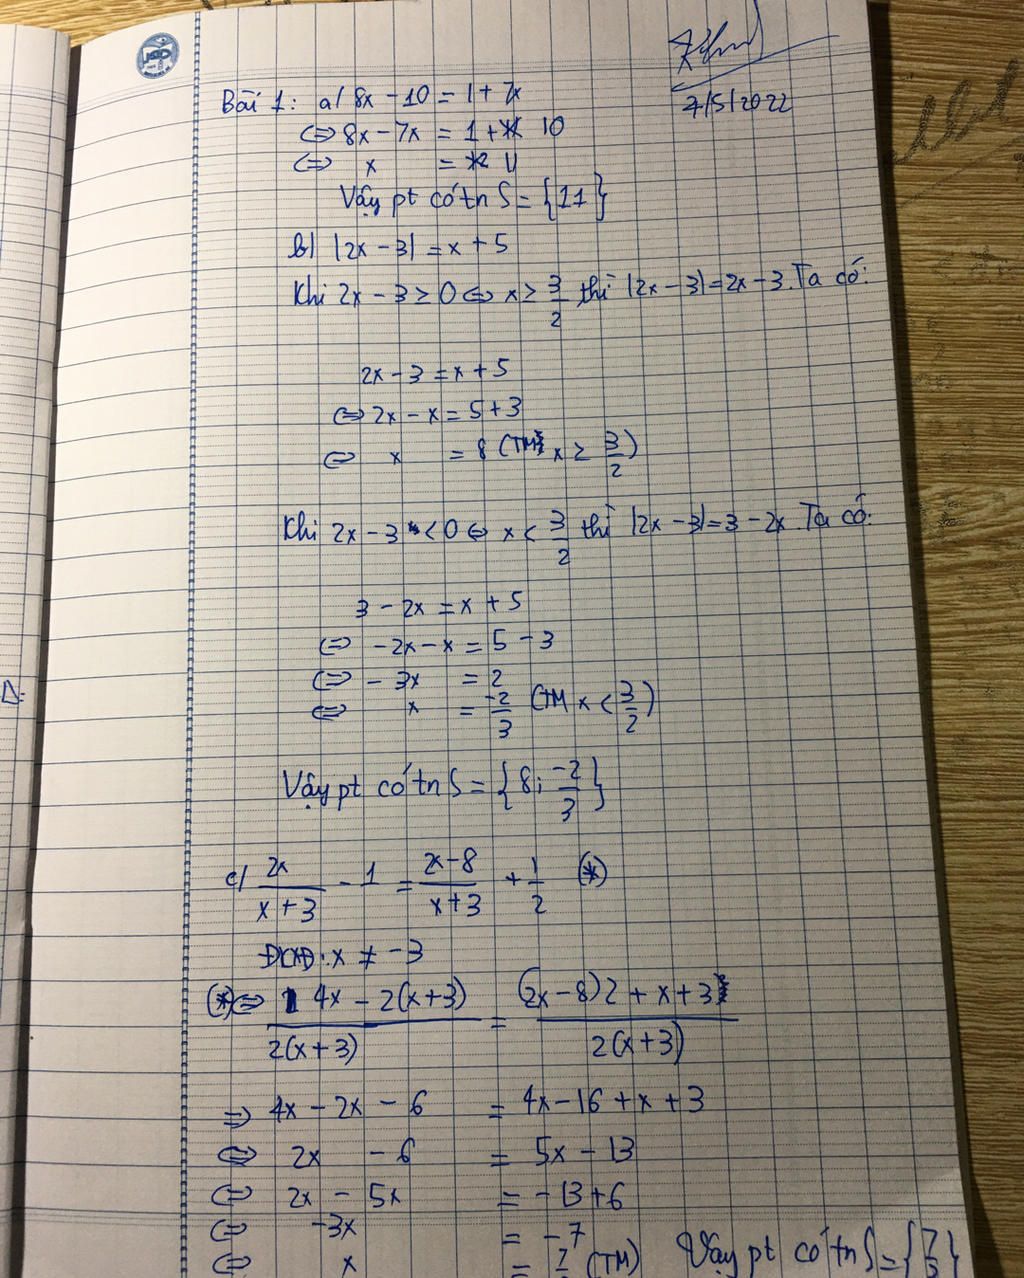 7/5/2022
Bài 1: a/ 8x - 10 = 1 + 7x
⇔ 8x - 7x = 1 + 10
⇔ x = 11
Vậy pt có tn S = {11}
b/ |2x - 3| = x + 5
Khi 2x - 3 ≥ 0 ⇔ x ≥ 3/2 thì |2x - 3| = 2x - 3. Ta có:
2x - 3 = x + 5
⇔ 2x - x = 5 + 3
⇔ x = 8 (TM x ≥ 3/2)
Khi 2x - 3 < 0 ⇔ x < 3/2 thì |2x - 3| = 3 - 2x. Ta có:
3 - 2x = x + 5
⇔ -2x - x = 5 - 3
⇔ - 3x = 2
⇔ x = -2/3 (TM x < 3/2)
Vậy pt có tn S = {8; -2/3}
c/ 2x/(x + 3) - 1 = (2x - 8)/(x + 3) + 1/2 (*)
ĐKXĐ: x ≠ -3
(*) ⇔ (4x - 2(x + 3))/(2(x + 3)) = ((2x - 8)2 + x + 3)/(2(x + 3))
⇒ 4x - 2x - 6 = 4x - 16 + x + 3
⇔ 2x - 6 = 5x - 13
⇔ 2x - 5x = -13 + 6
⇔ -3x = -7
⇔ x = 7/3 (TM) Vậy pt có tn S = {7/3}